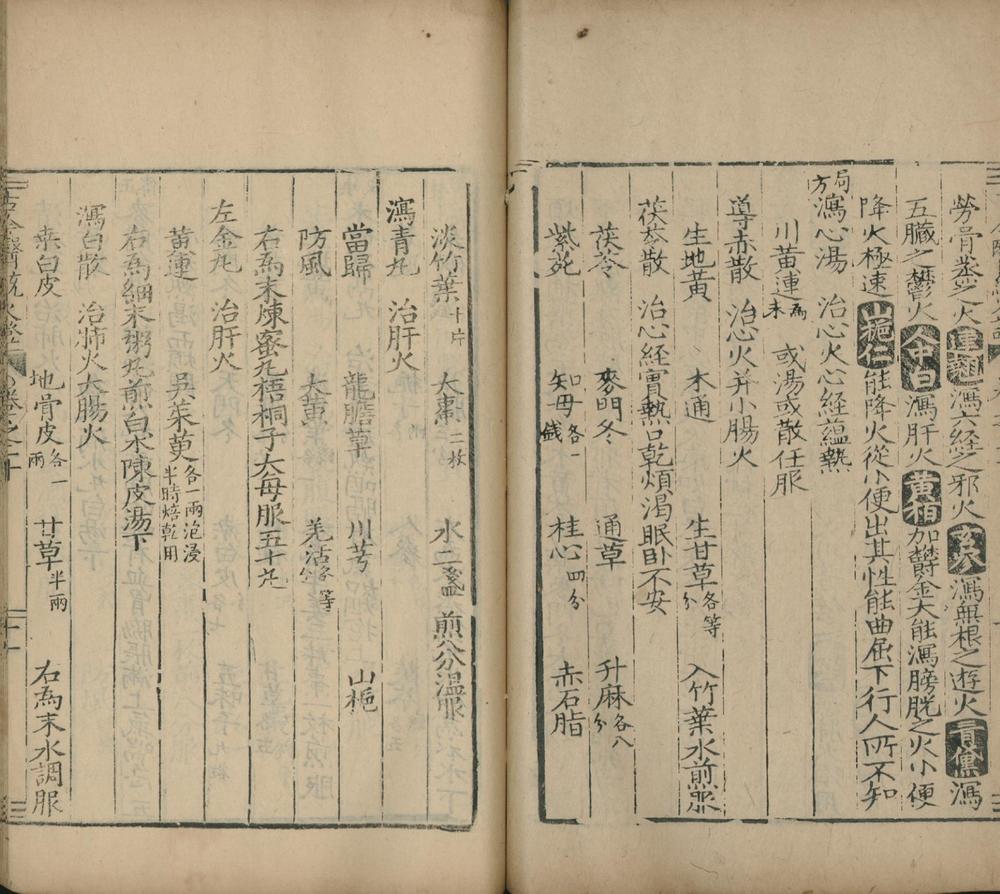 勞骨蒸之火連翹瀉六經之邪火玄參瀉無根之遊火青黛瀉
五臟之欝火人中白瀉肝火黄栢加欝金大能瀉膀胱之火小便
降火極速山梔仁能降火從小便出其性能曲屈下行人所不知
局方瀉心湯 治心火心經蘊熱
川黄連為末 或湯或散任服
導赤散 治心火并小腸火
生地黄 木通 生甘草各等分 入竹葉水煎服
茯苓散 治心經實熱口乾煩渴眠卧不安
茯苓 麥門冬 通草 升麻各八分
紫菀 知母各一錢 桂心四分 赤石脂
淡竹葉十片 大棗二枚 水二盞 煎六分溫服
瀉青丸 治肝火
當歸 龍膽草 川芎 山梔
防風 大黄 羌活各等分
右為末煉蜜丸梧桐子大每服五十丸
左金丸 治肝火
黄連 吳茱萸各一兩泡浸半時焙乾用
右為細末粥丸煎白朮陳皮湯下
瀉白散 治肺火大腸火
桑白皮 地骨皮各一兩 甘草半兩 右為末水調服